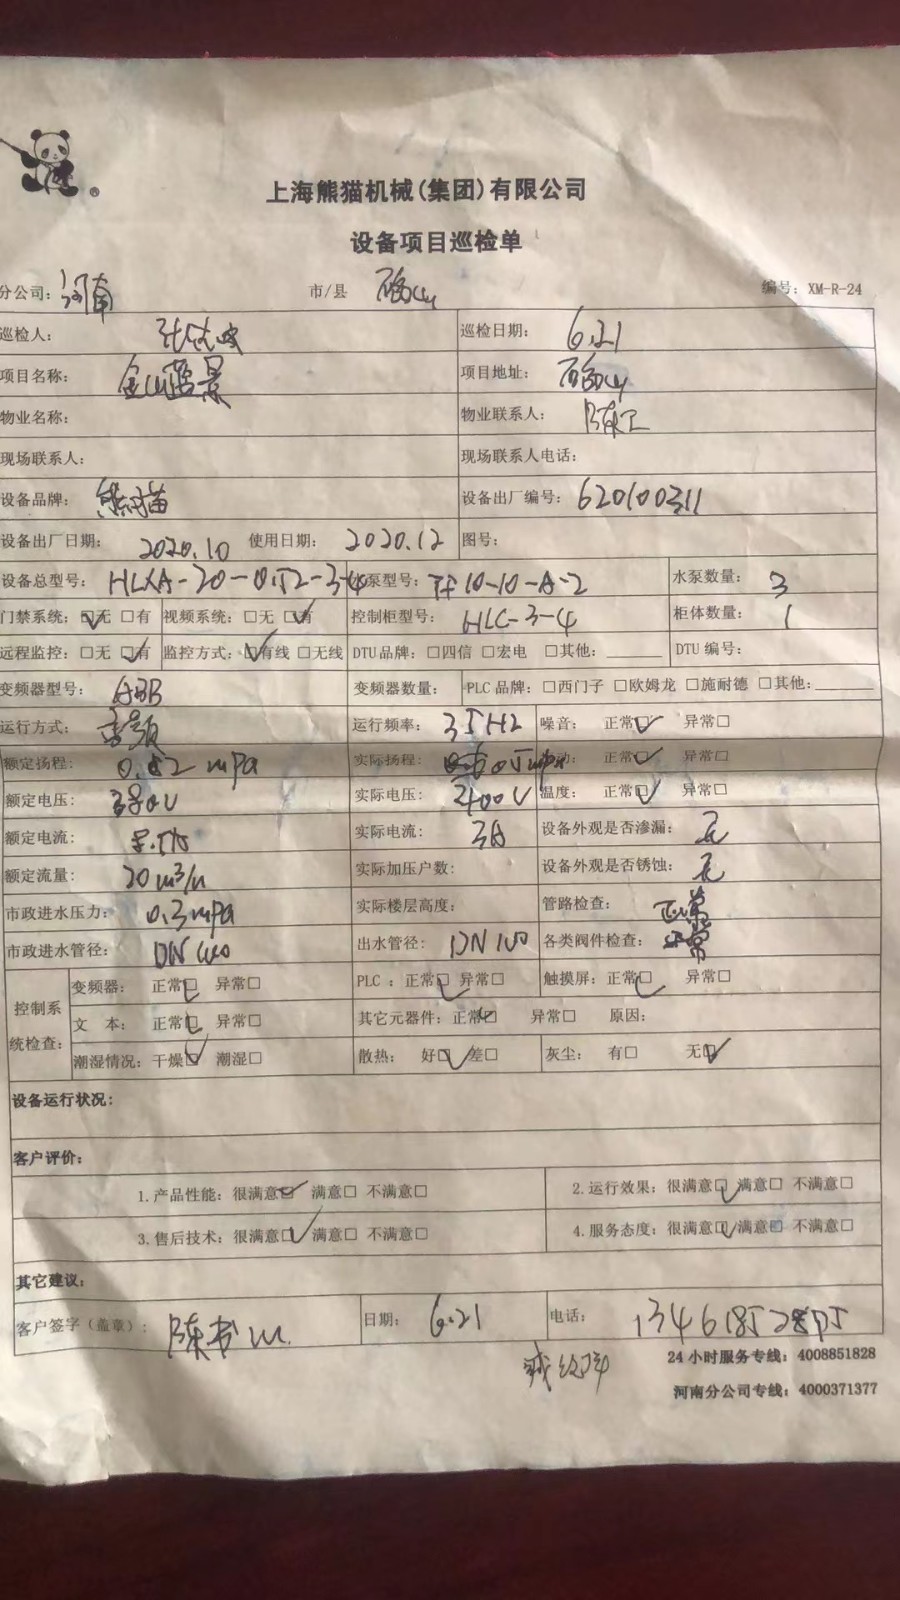 上海熊猫机械(集团)有限公司
设备项目巡检单
分公司: 河南 市/县 确山 编号: XM-R-24
巡检人: 巡检日期: 6.21
项目名称: 金山蓝景 项目地址: 确山
物业名称: 物业联系人: 陈工
现场联系人: 现场联系人电话:
设备品牌: 熊猫 设备出厂编号: 620100311
设备出厂日期: 2020.10 使用日期: 2020.12 图号:
设备总型号: HLXA-20-0.52-3-4 泵型号: 10-10-A-2 水泵数量: 3
门禁系统: ☑无 □有 视频系统: □无 ☑有 控制柜型号: HLC-3-4 柜体数量: 1
远程监控: □无 ☑有 监控方式: ☑有线 □无线 DTU品牌: □四信 □宏电 □其他: DTU编号:
变频器型号: ABB 变频器数量: PLC品牌: □西门子 □欧姆龙 □施耐德 □其他:
运行方式: 变频 运行频率: 35HZ 噪音: 正常☑ 异常□
额定扬程: 0.52 mpa 实际扬程: 0.5mpa 动: 正常☑ 异常□
额定电压: 380V 实际电压: 400V 温度: 正常☑ 异常□
额定电流: 实际电流: 3A 设备外观是否渗漏: 无
额定流量: 20 m³/h 实际加压户数: 设备外观是否锈蚀: 无
市政进水压力: 0.3mpa 实际楼层高度: 管路检查: 正常
市政进水管径: DN100 出水管径: DN100 各类阀件检查: 正常
控制系统检查: 变频器: 正常☑ 异常□ PLC: 正常☑ 异常□ 触摸屏: 正常☑ 异常□
文 本: 正常☑ 异常□ 其它元器件: 正常☑ 异常□ 原因:
潮湿情况: 干燥☑ 潮湿□ 散热: 好☑ 差□ 灰尘: 有□ 无☑
设备运行状况:
客户评价:
1.产品性能: 很满意☑ 满意□ 不满意□ 2.运行效果: 很满意☑ 满意□ 不满意□
3.售后技术: 很满意☑ 满意□ 不满意□ 4.服务态度: 很满意☑ 满意□ 不满意□
其它建议:
客户签字(盖章): 日期: 6.21 电话:
24小时服务专线: 4008851828
河南分公司专线: 4000371377